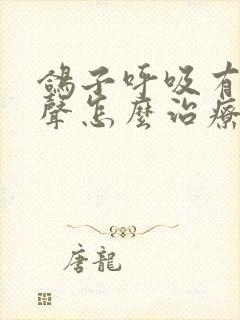 鴿子呼吸有
聲怎麼治療
唐龍